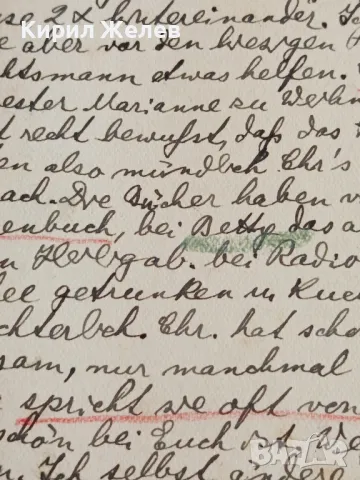 Кирил Желев
se 2x hintereinander.
e aber vor den hiesigen
chtsmann etwas helfen.
ester Marianne zu Weihn
t recht bewußt, daß das
en also mündlich Ehr's
ach. Die Bücher haben v
enbuch, bei Betty das a
n Herbg ab. bei Radio
ee getrunken u. Kuc
chterlich. Ehr. hat scho
sam, nur manchmal
spricht sie oft von
schön bei Euch ist
n. Ich selbst andere
BAZAR